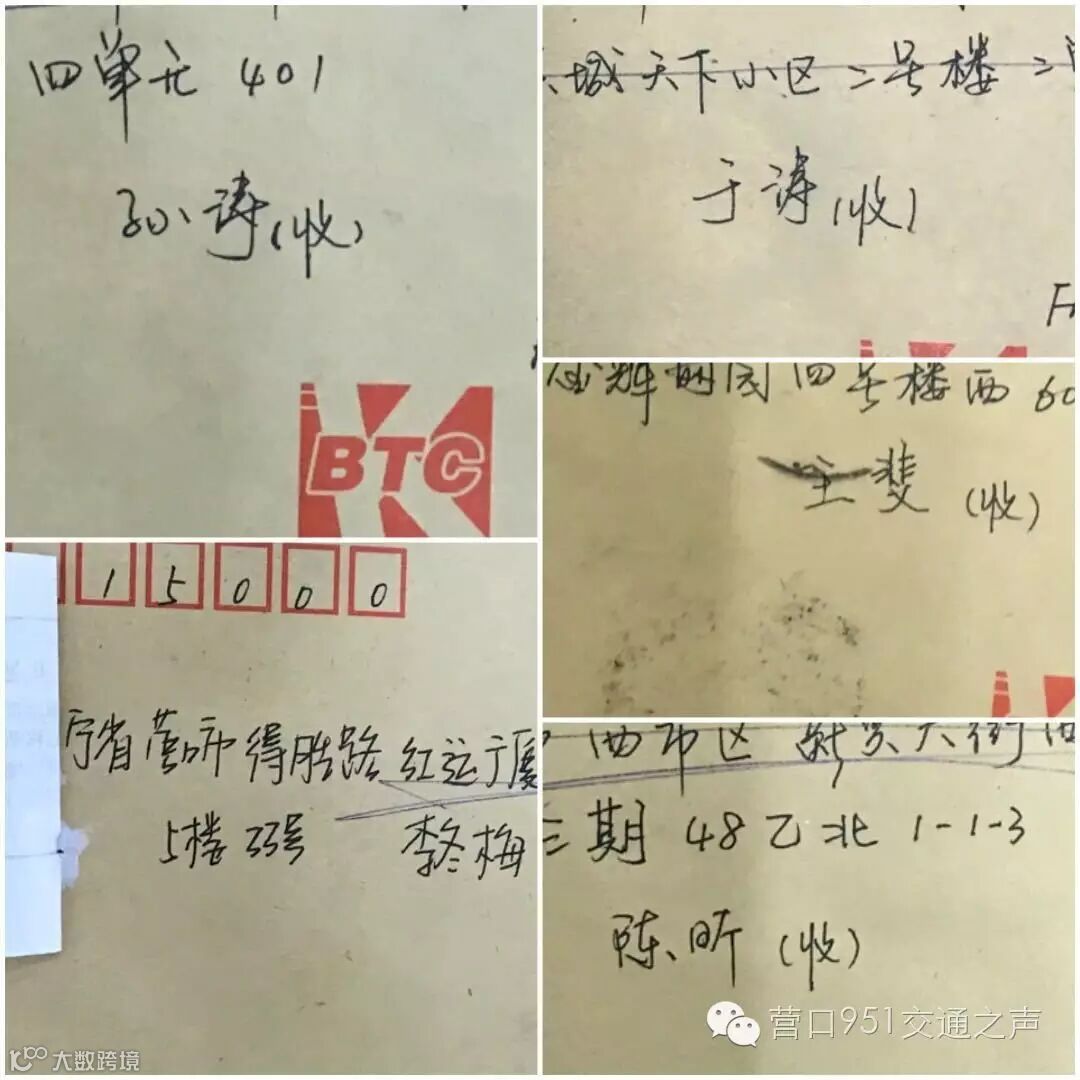 四单元 401
孙涛(收)
BTC
城天下小区二号楼二
于涛(收)
金辉明园四号楼西60
王斐 (收)
15000
宁省营口市得胜路红运广厦
5楼33号 李冬梅
西市区新兴大街西
三期 48乙北 1-1-3
陈昕 (收)
营口951交通之声
大数跨境